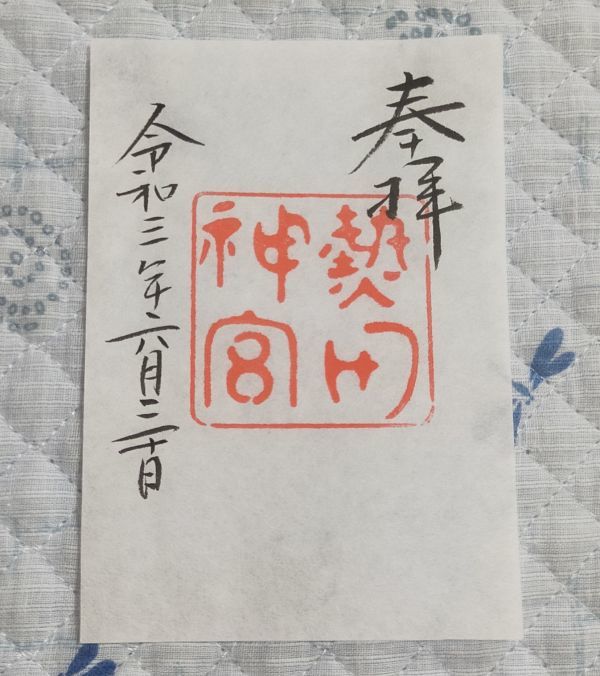 奉拝
熱田
神宮
令和三年六月三十日